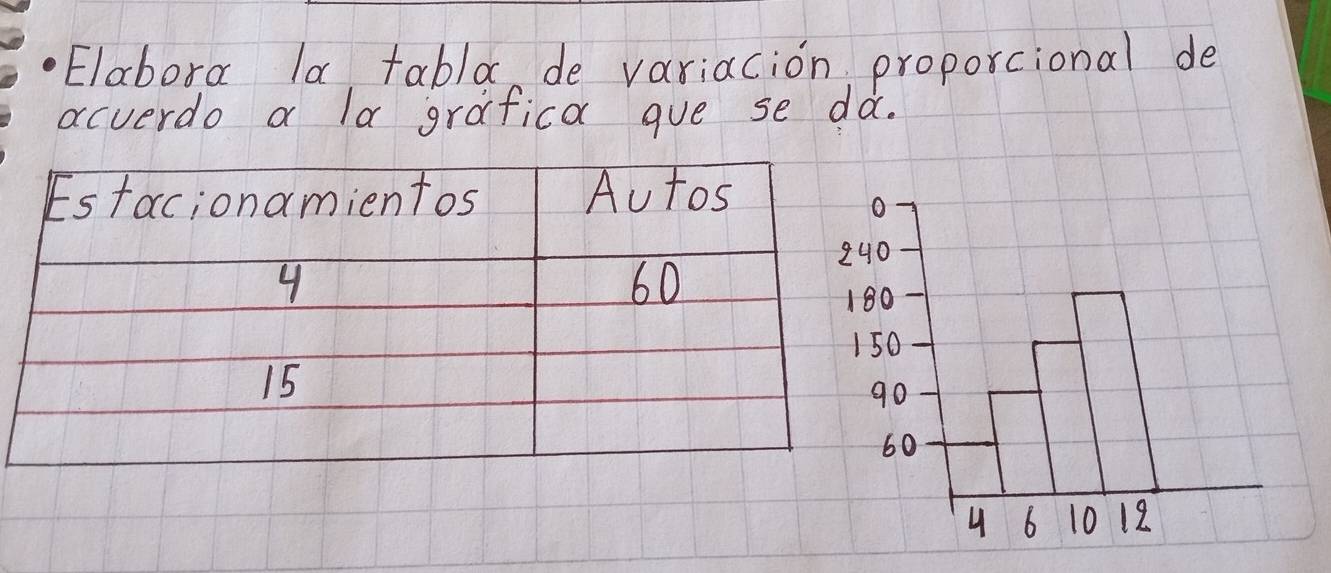 •Elabora la tabla de variación proporcional de
acuerdo a la gráfica que se da.
Estacionamientos Autos
4 60
15
0
240
180
150
90
60
4 6 10 12